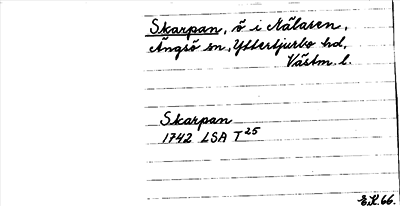 Skarpan, ö i Mälaren,
Ängsö sn, Yttertjurbo hd,
Västm. l.
Skarpan
1742 LSA T25
E.K. 66.